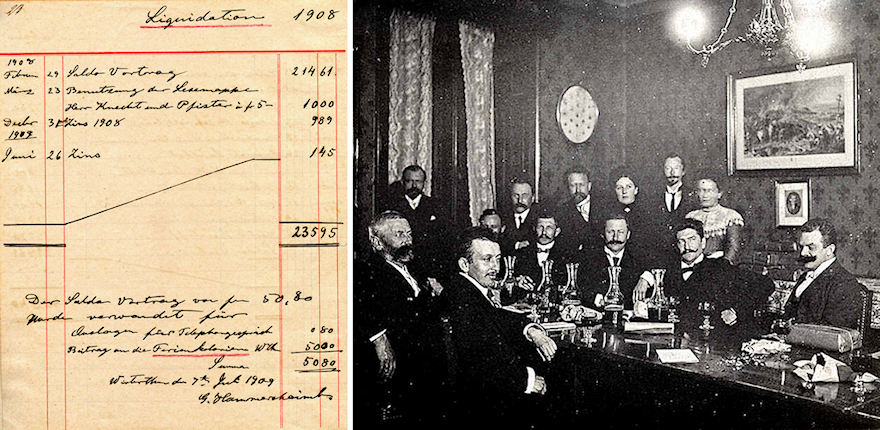 Liquidation 1908
1908
Februar 29 Saldo Vortrag 214 61.
März 23 Benutzung der Lesemappe
Herr Knecht und Pfister à fr 5 — 10 00
Decbr 31 Zins 1908 9 89
1909
Juni 26 Zins 1 45
235 95
Der Saldo Vortrag von fr 50,80
wurde verwendet für
Auslagen für Telephongespräch 0 80
Beitrag an die Ferienkolonien Wth 50 00
Summa 50 80
Winterthur den 7ten Juli 1909